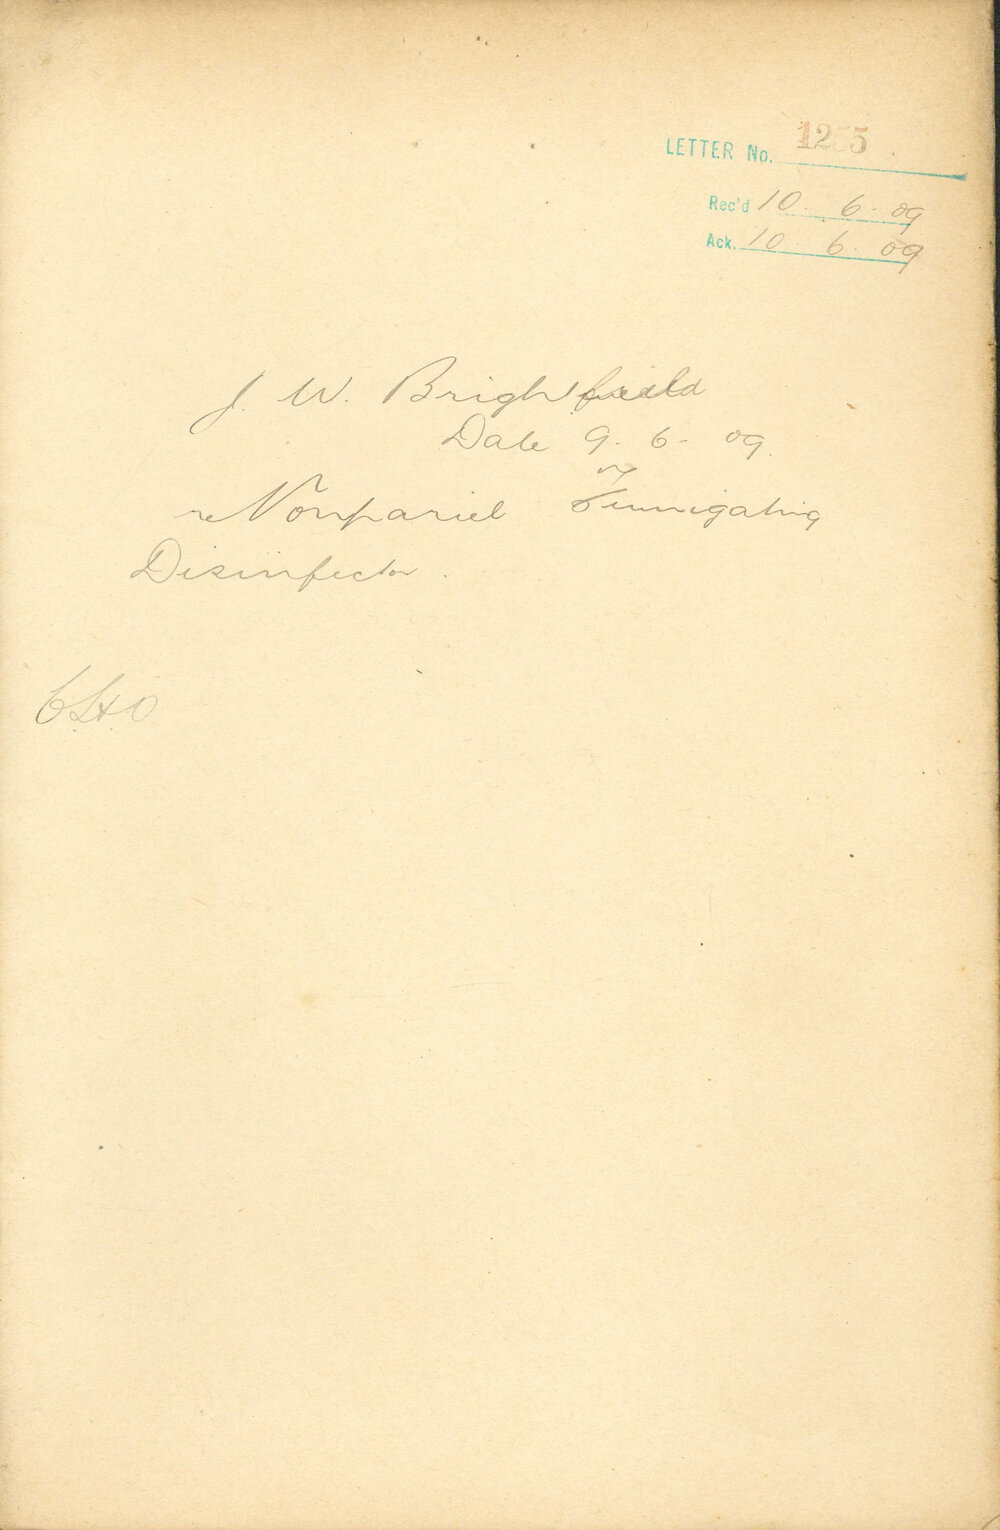 LETTER No. 1255
Rec'd 10. 6. 09
Ack. 10 6. 09
J. W. Brightfield
Date 9. 6. 09.
re Nonpariel Fumigating
Disinfector.